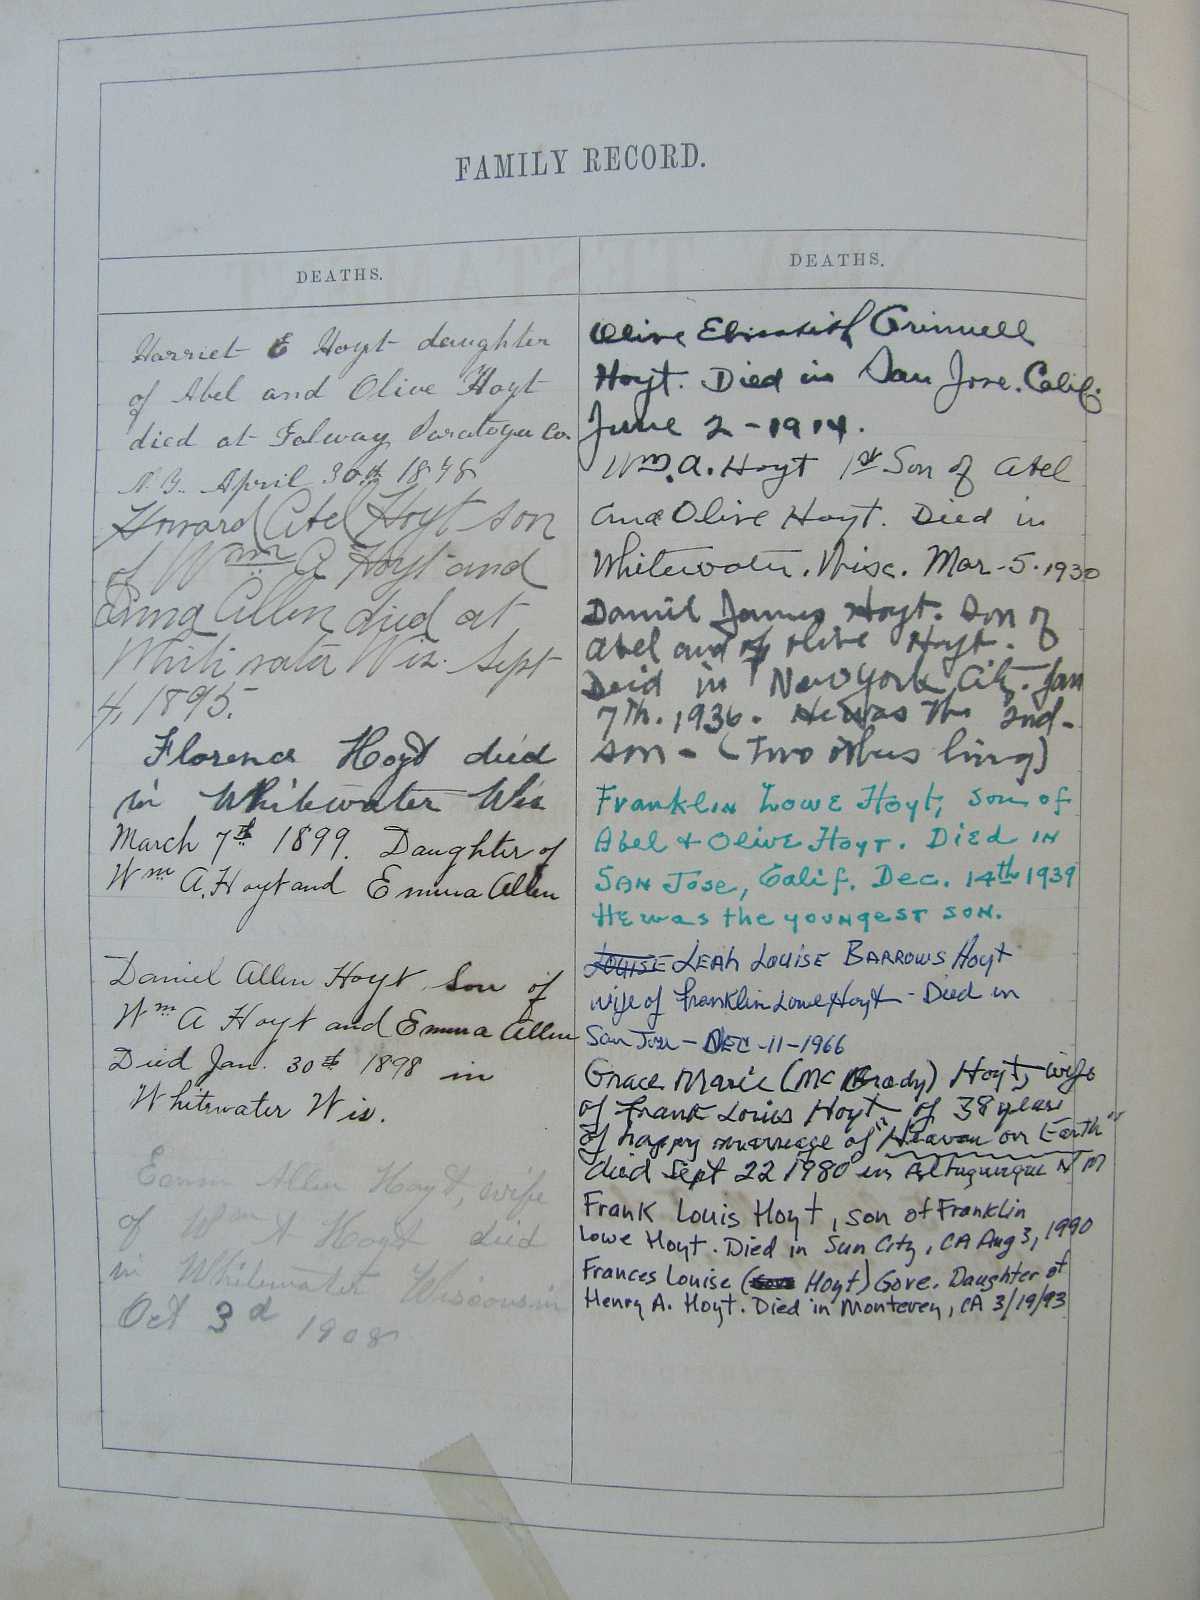 FAMILY RECORD.
DEATHS.
Harriet E Hoyt daughter
of Abel and Olive Hoyt
died at Galway Saratoga Co.
N.Y. April 30th 1848
Howard Abel Hoyt son
of Wm A Hoyt and
Emma Allen died at
White water Wis. Sept
4, 1895.
Florence Hoyt died
in Whitewater Wis
March 7th 1899. Daughter of
Wm A. Hoyt and Emma Allen
Daniel Allen Hoyt son of
Wm A Hoyt and Emma Allen
Died Jan. 30th 1898 in
Whitewater Wis.
Emma Allen Hoyt, wife
of Wm A Hoyt died
in Whitewater Wisconsin
Oct 3d 1908
DEATHS.
Olive Elizabeth Grinnell
Hoyt. Died in San Jose. Calif.
June 2 - 1914.
Wm. A. Hoyt 1st Son of Abel
and Olive Hoyt. Died in
Whitewater. Wisc. Mar - 5. 1930
Daniel James Hoyt. Son of
Abel and of Olive Hoyt.
Deid in New York City. Jan
7th. 1936. He was the 2nd -
son - (Two others living)
Franklin Lowe Hoyt, Son of
Abel + Olive Hoyt. Died in
San Jose, Calif. Dec. 14th 1939
He was the youngest son.
Louise Leah Louise Barrows Hoyt
wife of Franklin Lowe Hoyt - Died in
San Jose - DEC - 11 - 1966
Grace Marie (McBrady) Hoyt, wife
of Frank Louis Hoyt, of 38 years
of happy marriage of "Heaven on Earth"
died Sept 22 1980 in Albuquerque NM
Frank Louis Hoyt, son of Franklin
Lowe Hoyt. Died in Sun City, CA Aug 3, 1990
Frances Louise (Hoyt) Gove. Daughter of
Henry A. Hoyt. Died in Monterey, CA 3/19/93